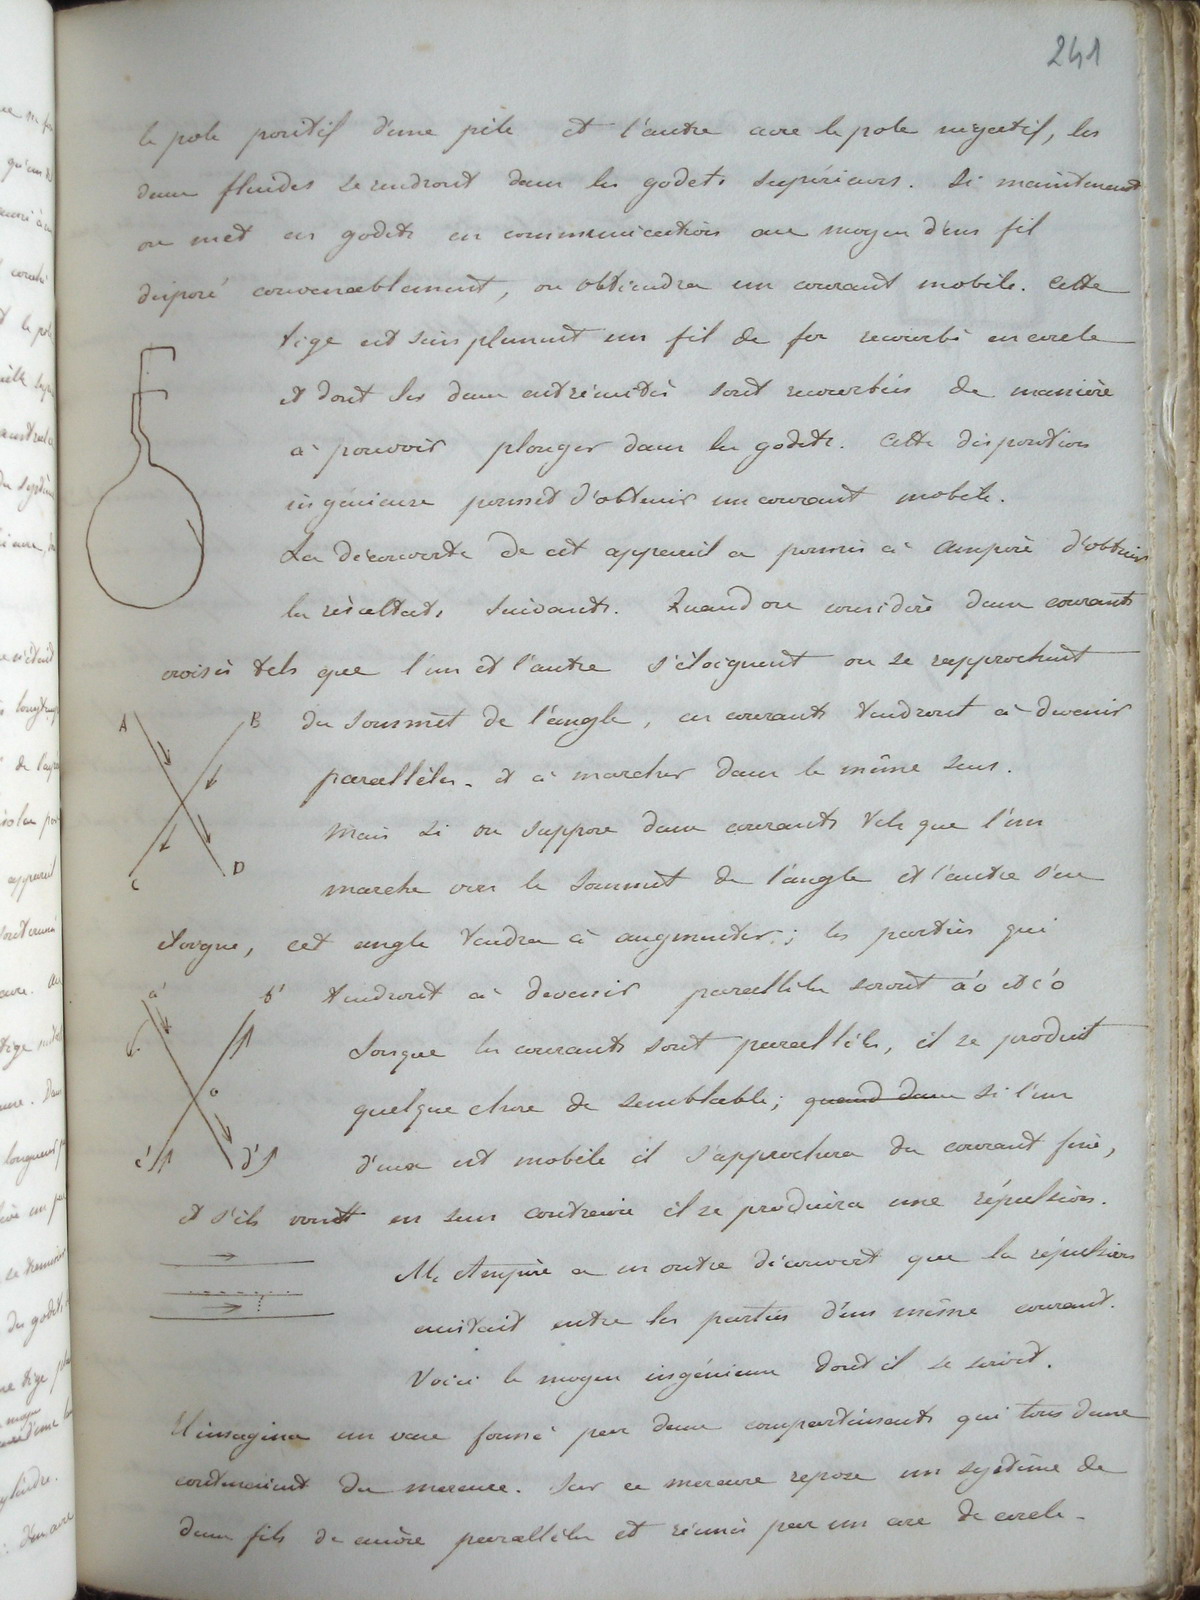 241
le pole positif d'une pile et l'autre avec le pole négatif, les
deux fluides se rendront dans les godets supérieurs. Si maintenant
on met ces godets en communication au moyen d'un fil
disposé convenablement, on obtiendra un courant mobile. Cette
tige est simplement un fil de fer recourbé en cercle
et dont les deux extrémités sont recourbées de manière
à pouvoir plonger dans les godets. Cette disposition
ingénieuse permet d'obtenir un courant mobile.
La découverte de cet appareil a permis à Ampère d'obtenir
les résultats suivants. Quand on considère deux courants
croisés tels que l'un et l'autre s'éloignent ou se rapprochent
A B du sommet de l'angle, ces courants tendront à devenir
parallèles. et à marcher dans le même sens.
Mais si on suppose deux courants tels que l'un
C D marche vers le sommet de l'angle et l'autre s'en
éloigne, cet angle tendra à augmenter; les parties qui
a' b' tendront à devenir parallèles seront a'o et c'o
Lorsque les courants sont parallèles, il se produit
o quelque chose de semblable; quand deux si l'un
c' d' d'eux est mobile il s'approchera du courant fixe,
et s'ils vont en sens contraire il se produira une répulsion.
Mr Ampère a en outre découvert que la répulsion
existait entre les parties d'un même courant.
Voici le moyen ingénieux dont il se servit.
Il imagina un vase formé par deux compartiments qui tous deux
contenaient du mercure. Sur ce mercure repose un système de
deux fils de cuivre parallèles et réunis par un arc de cercle.